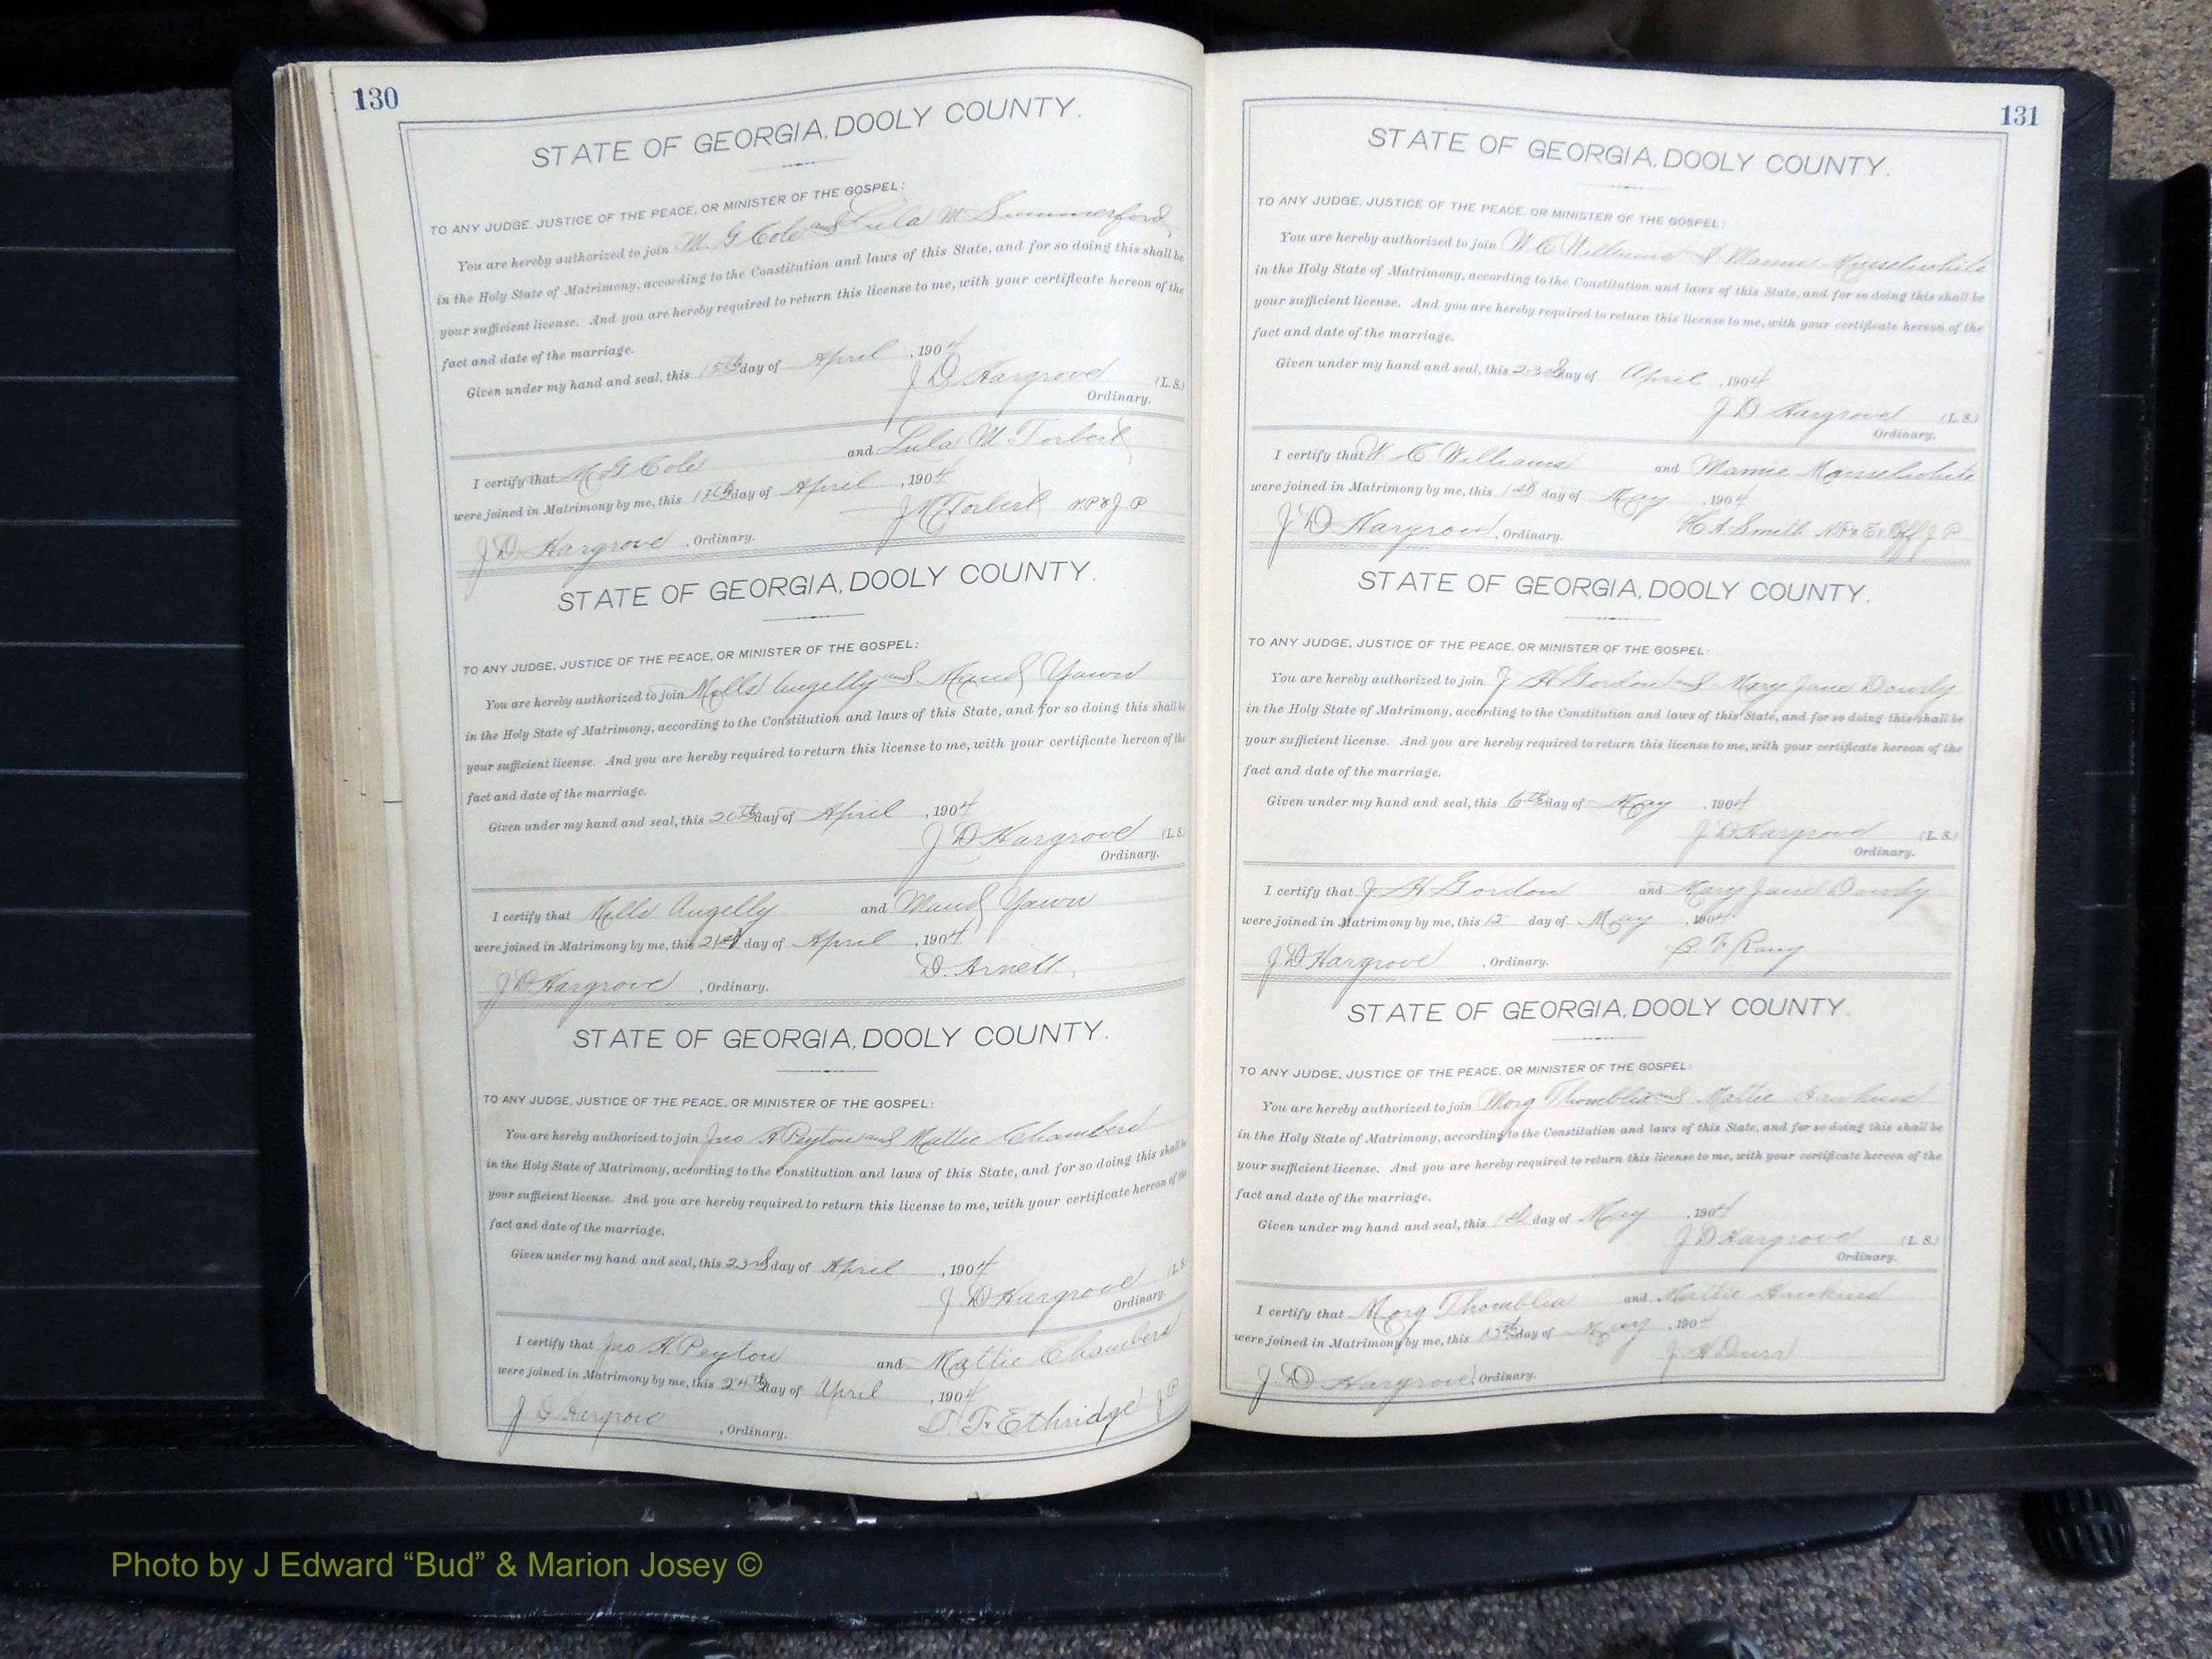 130
STATE OF GEORGIA, DOOLY COUNTY.
TO ANY JUDGE, JUSTICE OF THE PEACE, OR MINISTER OF THE GOSPEL:
You are hereby authorized to join M. G Cole and Lula M Summerford
in the Holy State of Matrimony, according to the Constitution and laws of this State, and for so doing this shall be
your sufficient license. And you are hereby required to return this license to me, with your certificate hereon of the
fact and date of the marriage.
Given under my hand and seal, this 15th day of April , 1904
J D Hargrove (L. S.)
Ordinary.
I certify that M G Cole and Lula M Torbert
were joined in Matrimony by me, this 17th day of April , 1904
J M Torbert N.P & J P
J D Hargrove , Ordinary.
STATE OF GEORGIA, DOOLY COUNTY.
TO ANY JUDGE, JUSTICE OF THE PEACE, OR MINISTER OF THE GOSPEL:
You are hereby authorized to join Mills Augelly and Maud Yawn
in the Holy State of Matrimony, according to the Constitution and laws of this State, and for so doing this shall be
your sufficient license. And you are hereby required to return this license to me, with your certificate hereon of the
fact and date of the marriage.
Given under my hand and seal, this 20th day of April , 1904
J D Hargrove (L. S.
Ordinary.
I certify that Mills Augelly and Maud Yawn
were joined in Matrimony by me, this 21st day of April , 1904
D. Arnett
J D Hargrove , Ordinary.
STATE OF GEORGIA, DOOLY COUNTY.
TO ANY JUDGE, JUSTICE OF THE PEACE, OR MINISTER OF THE GOSPEL:
You are hereby authorized to join Jno H Peyton and Mattie Chambers
in the Holy State of Matrimony, according to the Constitution and laws of this State, and for so doing this shall be
your sufficient license. And you are hereby required to return this license to me, with your certificate hereon of the
fact and date of the marriage.
Given under my hand and seal, this 23rd day of April , 1904
J. D Hargrove (L. S.
Ordinary.
I certify that Jno H. Peyton and Mattie Chambers
were joined in Matrimony by me, this 24th day of April , 1904
F. Ethridge J P
J D Hargrove , Ordinary.
131
STATE OF GEORGIA, DOOLY COUNTY.
TO ANY JUDGE, JUSTICE OF THE PEACE, OR MINISTER OF THE GOSPEL:
You are hereby authorized to join W C Williams & Mamie Musselwhite
in the Holy State of Matrimony, according to the Constitution and laws of this State, and for so doing this shall be
your sufficient license. And you are hereby required to return this license to me, with your certificate hereon of the
fact and date of the marriage.
Given under my hand and seal, this 23rd day of April , 1904
J. D Hargrove (L. S.)
Ordinary.
I certify that W C Williams and Mamie Musselwhite
were joined in Matrimony by me, this 1st day of May , 1904
H A Smith N.P & Ex Off J P
J D Hargrove , Ordinary.
STATE OF GEORGIA, DOOLY COUNTY.
TO ANY JUDGE, JUSTICE OF THE PEACE, OR MINISTER OF THE GOSPEL:
You are hereby authorized to join J H Gordon and Mary Jane Dowdy
in the Holy State of Matrimony, according to the Constitution and laws of this State, and for so doing this shall be
your sufficient license. And you are hereby required to return this license to me, with your certificate hereon of the
fact and date of the marriage.
Given under my hand and seal, this 6th day of May , 1904
J D Hargrove (L. S.)
Ordinary.
I certify that J H Gordon and Mary Jane Dowdy
were joined in Matrimony by me, this 12 day of May , 1904
J D Hargrove , Ordinary.
STATE OF GEORGIA, DOOLY COUNTY.
TO ANY JUDGE, JUSTICE OF THE PEACE, OR MINISTER OF THE GOSPEL:
You are hereby authorized to join Morg Thomblin and Mattie Hawkins
in the Holy State of Matrimony, according to the Constitution and laws of this State, and for so doing this shall be
your sufficient license. And you are hereby required to return this license to me, with your certificate hereon of the
fact and date of the marriage.
Given under my hand and seal, this 1st day of May , 1904
J D Hargrove (L. S.)
Ordinary.
I certify that Morg Thomblin and Mattie Hawkins
were joined in Matrimony by me, this 15th day of May , 1904
J A Durr
J D Hargrove , Ordinary.
Photo by J Edward “Bud” & Marion Josey ©